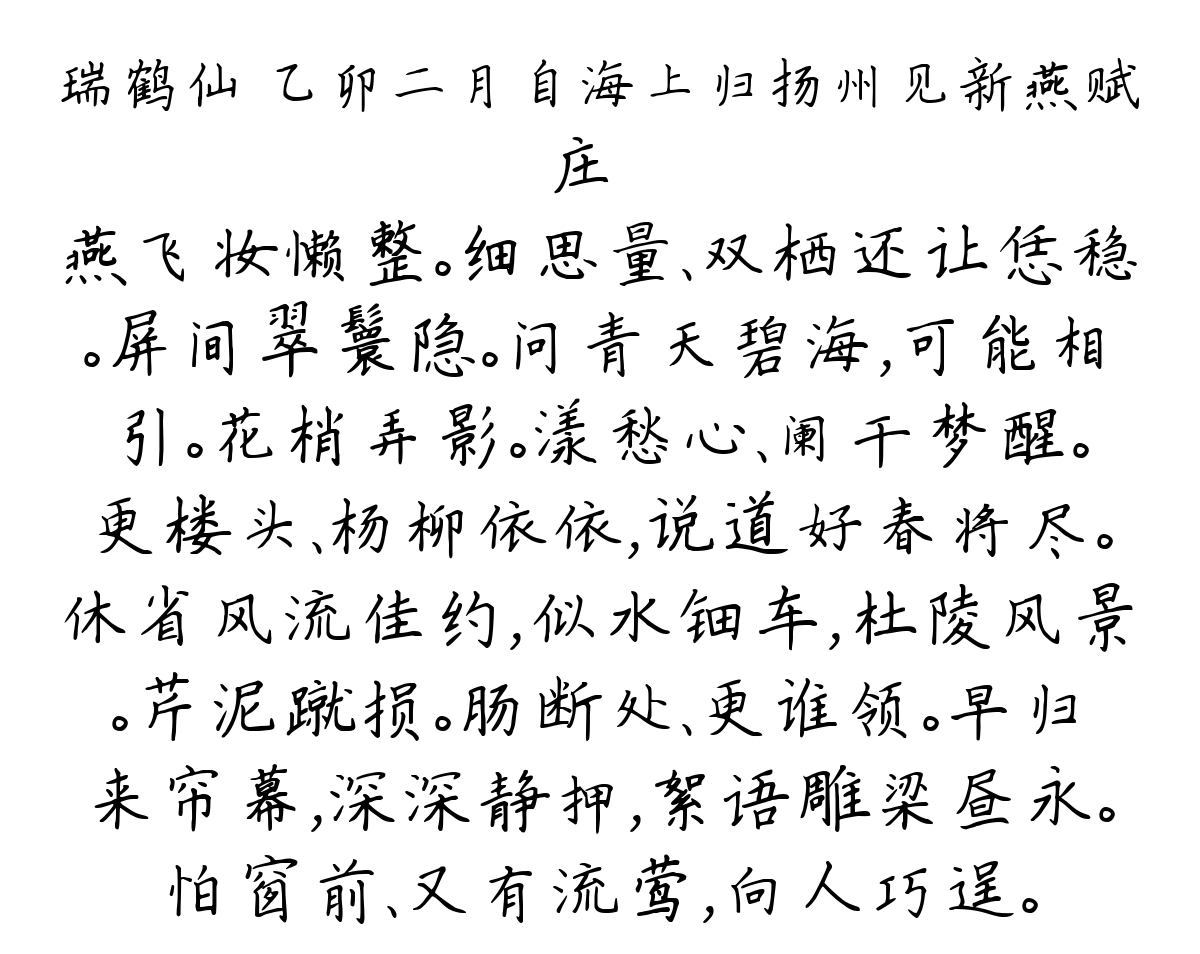 瑞鹤仙 乙卯二月自海上归扬州见新燕赋
庄
燕飞妆懒整。细思量、双栖还让恁稳
。屏间翠鬟隐。问青天碧海,可能相
引。花梢弄影。漾愁心、阑干梦醒。
更楼头、杨柳依依,说道好春将尽。
休省风流佳约,似水钿车,杜陵风景
。芹泥蹴损。肠断处、更谁领。早归
来帘幕,深深静押,絮语雕梁昼永。
怕窗前、又有流莺,向人巧逞。